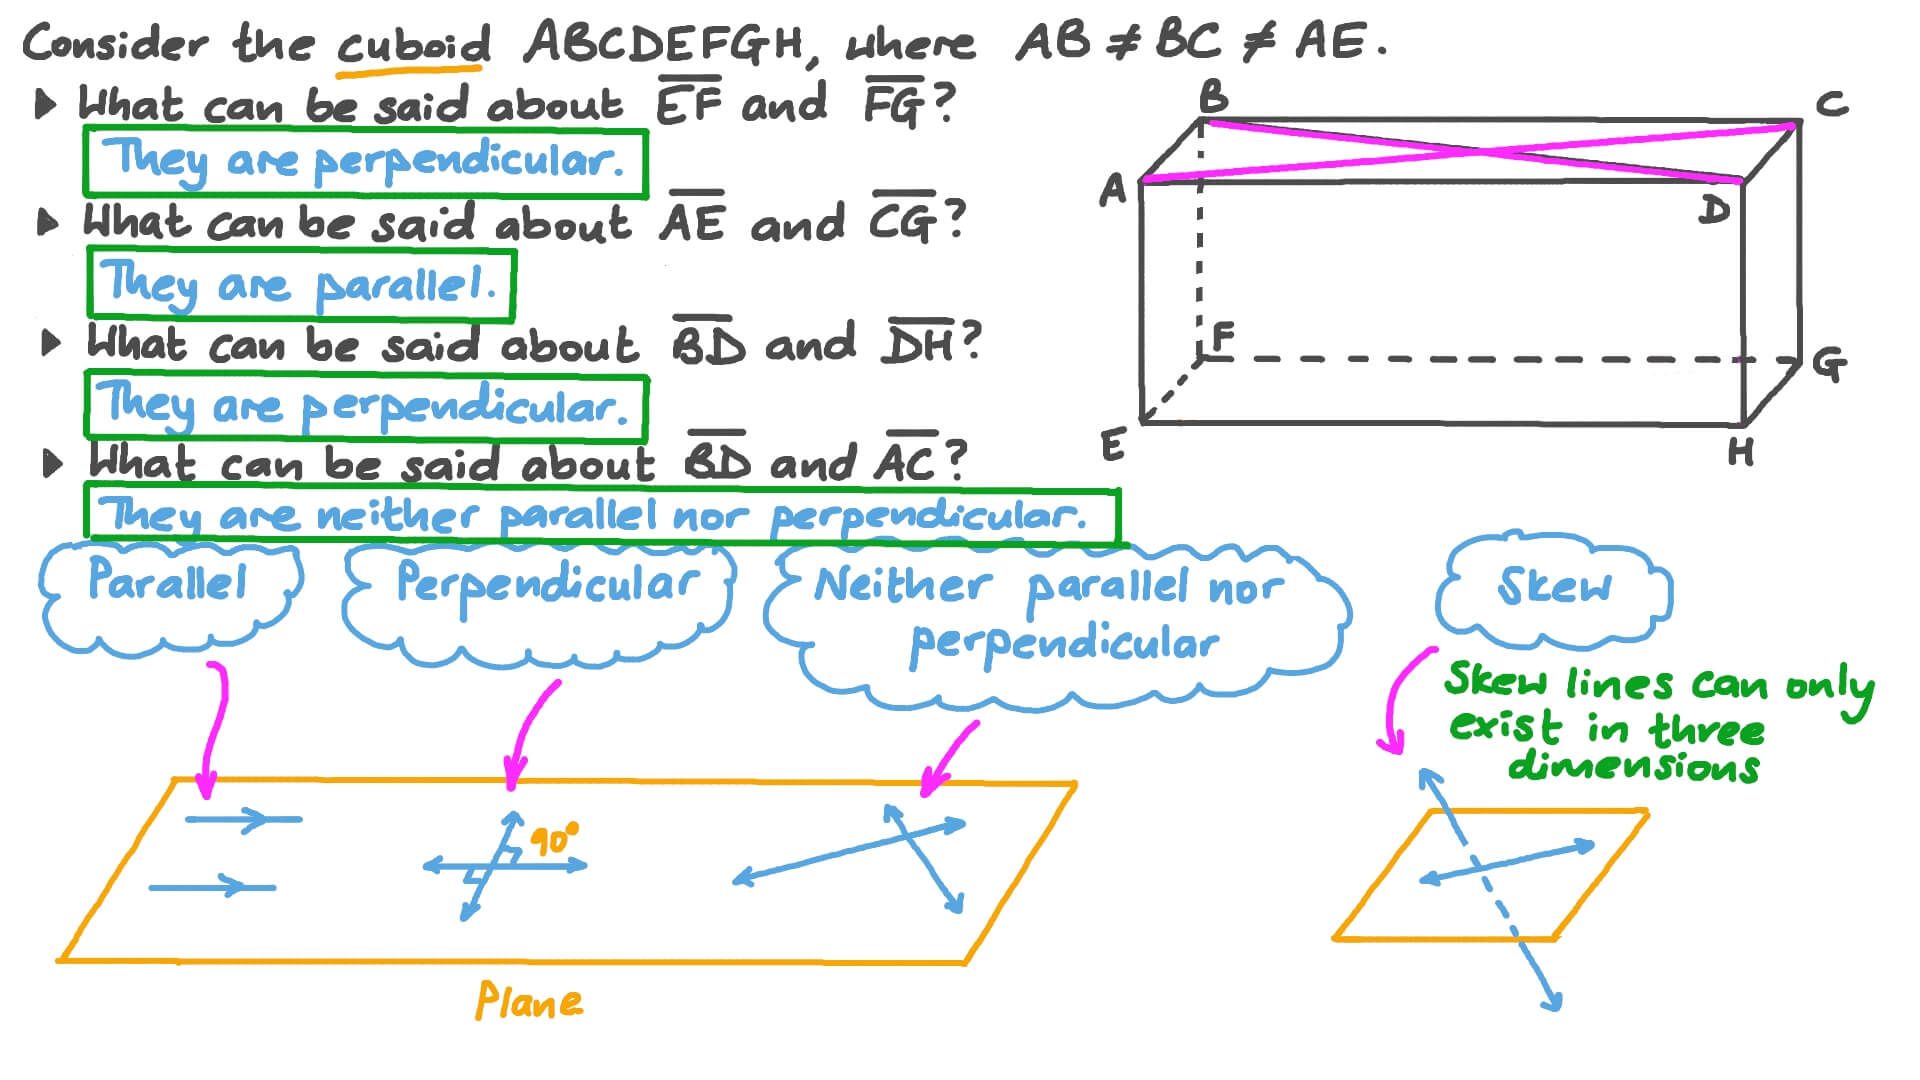 Consider the cuboid ABCDEFGH, where AB ≠ BC ≠ AE.
▸ What can be said about E̅F̅ and F̅G̅?
They are perpendicular.
▸ What can be said about A̅E̅ and C̅G̅?
They are parallel.
▸ What can be said about B̅D̅ and D̅H̅?
They are perpendicular.
▸ What can be said about B̅D̅ and A̅C̅?
They are neither parallel nor perpendicular.
B
C
A
D
F
G
E
H
Parallel
Perpendicular
Neither parallel nor
perpendicular
Skew
Skew lines can only
exist in three
dimensions
90°
Plane